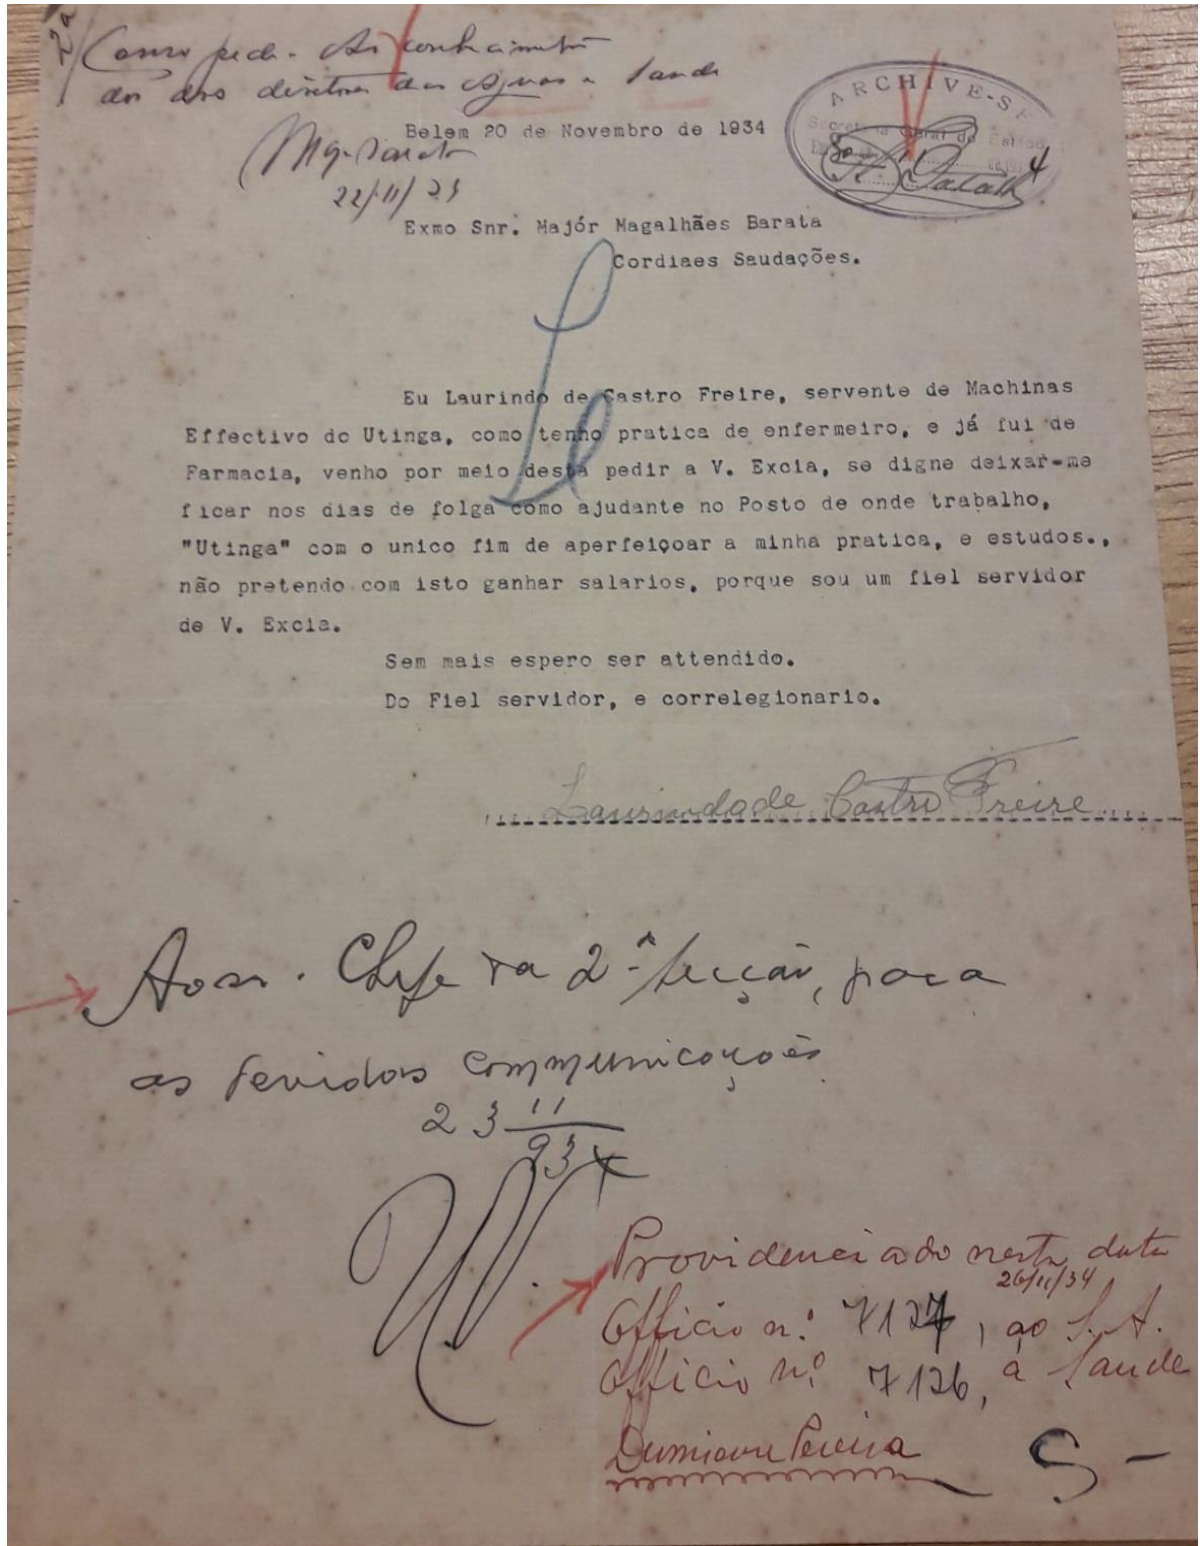 2ª
Como pede. Ao conhecimento
dos directores das Aguas e Saude
Mag. Barata
22/11/34
ARCHIVE-SE
Secretaria Geral do Estado
Belem 20 de Novembro de 1934
Exmo Snr. Majór Magalhães Barata
Cordiaes Saudações.
Eu Laurindo de Castro Freire, servente de Machinas
Effectivo do Utinga, como tenho pratica de enfermeiro, e já fui de
Farmacia, venho por meio desta pedir a V. Excia, se digne deixar-me
ficar nos dias de folga como ajudante no Posto de onde trabalho,
"Utinga" com o unico fim de aperfeiçoar a minha pratica, e estudos.,
não pretendo com isto ganhar salarios, porque sou um fiel servidor
de V. Excia.
Sem mais espero ser attendido.
Do Fiel servidor, e correlegionario.
Laurindo de Castro Freire
Ao sr. Chefe da 2ª secção, para
as devidas communicações
23 11
934
Providenciado nesta data
26/11/34
Officio n.º 7127, ao S. A.
Officio nº 7126, á Saude
Pereira
S-